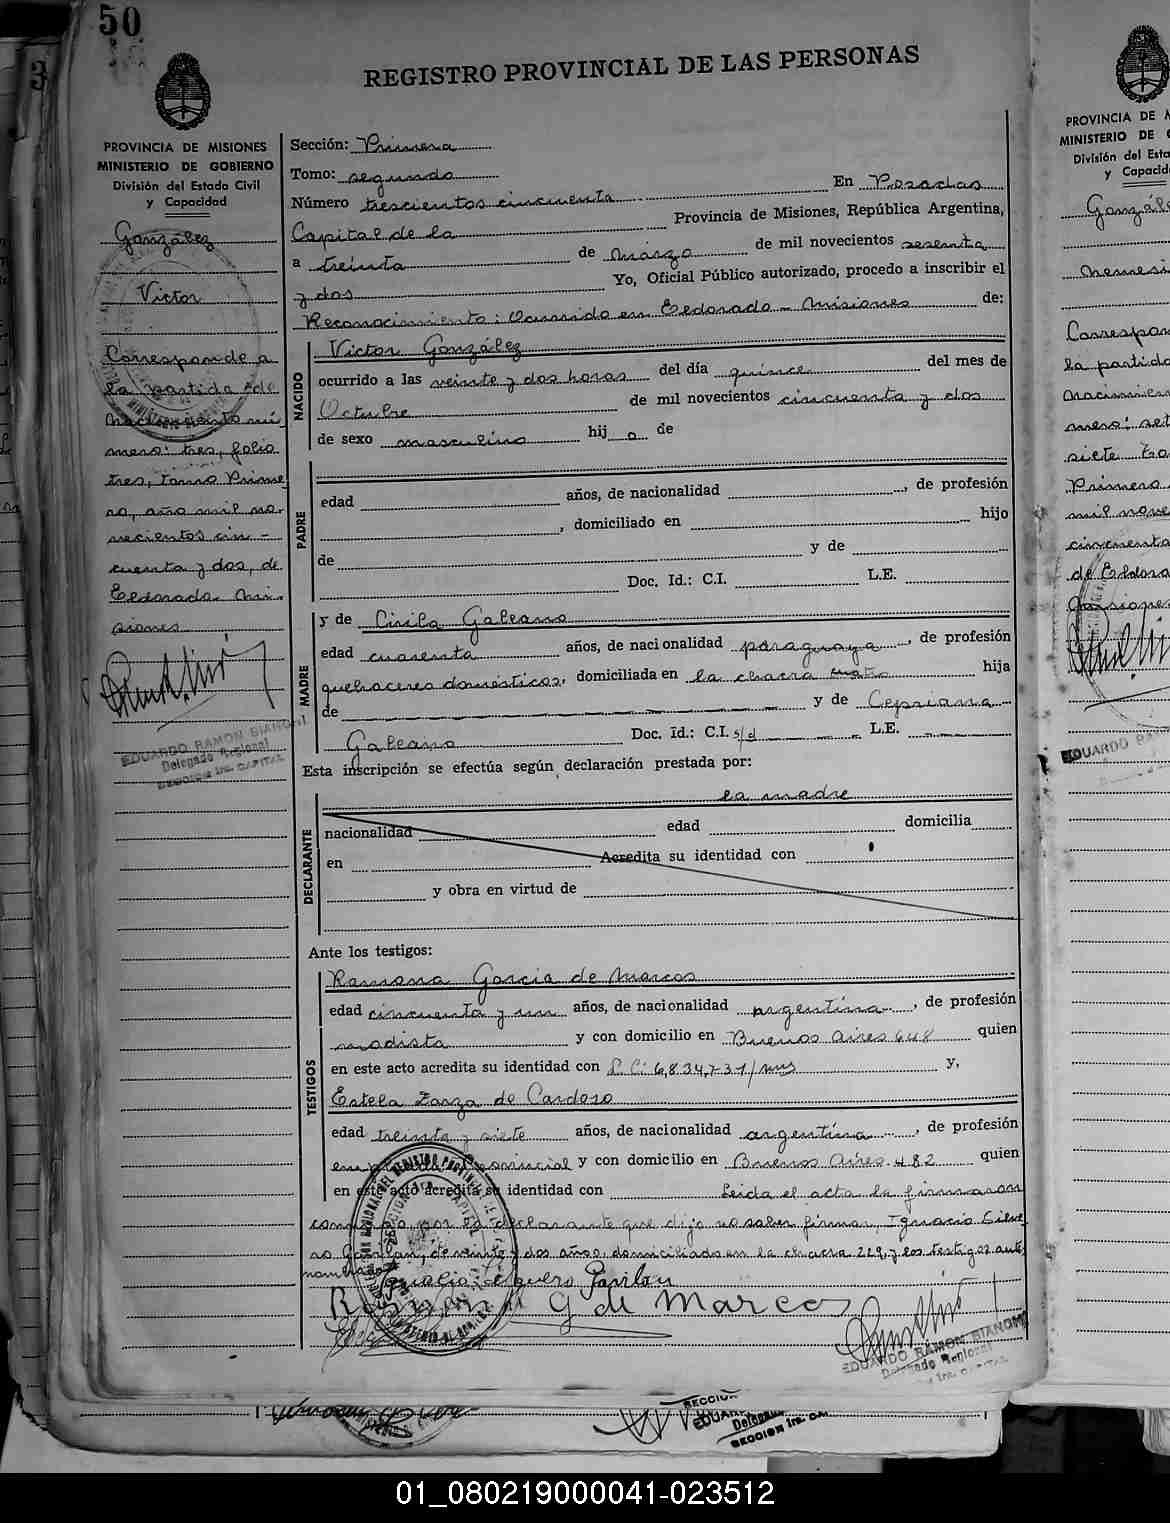 50
REGISTRO PROVINCIAL DE LAS PERSONAS
PROVINCIA DE MISIONES
MINISTERIO DE GOBIERNO
División del Estado Civil
y Capacidad
González
Victor
Corresponde a
la partida de
nacimiento nú-
mero: tres, folio
tres, tomo Prime-
ro, año mil no-
vecientos cin-
cuenta y dos, de
Eldorado. Mi-
siones
EDUARDO RAMON BIANONI
Delegado Regional
SECCION 1ra. CAPITAL
Sección: Primera
Tomo: segundo
Número trescientos cincuenta En Posadas
Capital de la Provincia de Misiones, República Argentina,
a treinta de marzo de mil novecientos sesenta
y dos Yo, Oficial Público autorizado, procedo a inscribir el
Reconocimiento: Ocurrido en Eldorado - Misiones de:
NACIDO
Victor González
ocurrido a las veinte y dos horas del día quince del mes de
Octubre de mil novecientos cincuenta y dos
de sexo masculino hijo de
PADRE
edad años, de nacionalidad , de profesión
, domiciliado en hijo
de y de
Doc. Id.: C.I. L.E.
MADRE
y de Cirila Galeano
edad cuarenta años, de nacionalidad paraguaya, de profesión
quehaceres domésticos, domiciliada en la chacra cuatro hija
de y de Cepriana
Galeano Doc. Id.: C.I. s/d L.E.
Esta inscripción se efectúa según declaración prestada por:
la madre
DECLARANTE
nacionalidad edad domicilia
en Acredita su identidad con
y obra en virtud de
Ante los testigos:
TESTIGOS
Ramona Garcia de Marcos
edad cincuenta y un años, de nacionalidad argentina, de profesión
modista y con domicilio en Buenos Aires 648 quien
en este acto acredita su identidad con L.C: 6.834.731/mns y,
Estela Zarza de Cardoso
edad treinta y siete años, de nacionalidad argentina, de profesión
empleada Provincial y con domicilio en Buenos Aires 482 quien
en este acto acredita su identidad con Leida el acta la firmaron
conmigo, por la declarante que dijo no saber firmar, Ignacio Silve-
ro Gavilan, de veinte y dos años, domiciliado en la chacra 229, y los testigos ante
nombrados
Ignacio Silvero Gavilan
Ramona G de Marcos
EDUARDO RAMON BIANONI
Delegado Regional
1ra. CAPITAL
PROVINCIA DE
MINISTERIO DE
División del Esta
y Capacid
Nemesi
Correspon
la partida
nacimien
mero: set
siete
Primero
mil nove
cincuenta
de Eldora
EDUARDO
SECCION
EDUAR
Delegado
SECCION 1ra. CA
01_080219000041-023512